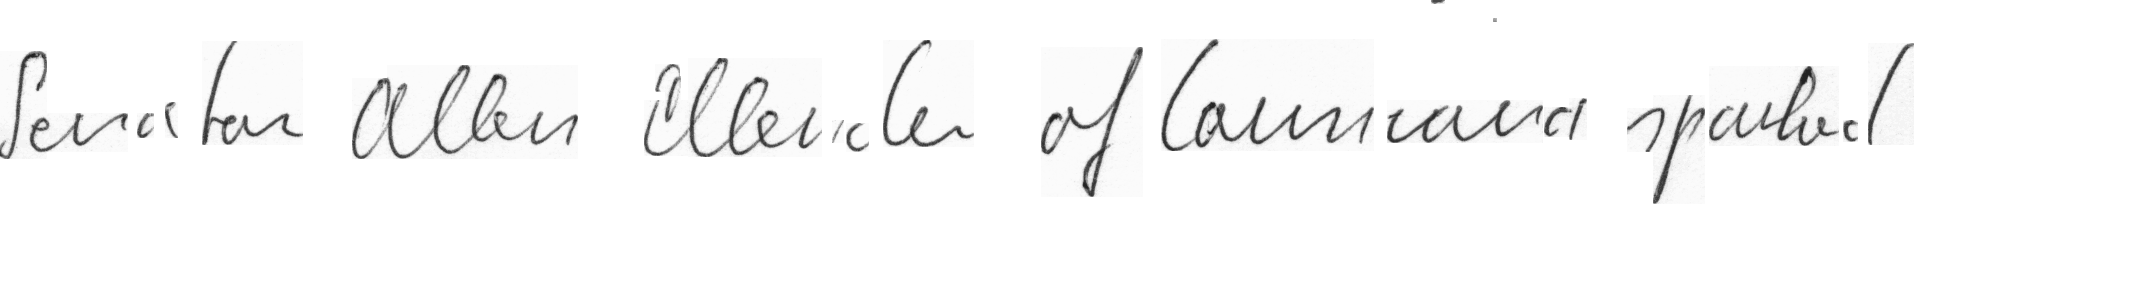 Senator Allen Ellender of Louisiana sparked